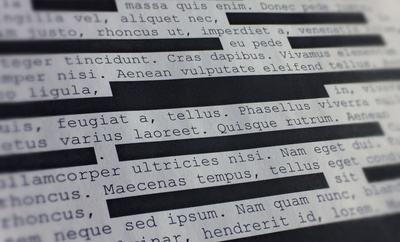 massa quis enim. Donec pede
fringilla vel, aliquet nec,
justo, rhoncus ut, imperdiet a, venenatis
eu pede
Integer tincidunt. Cras dapibus. Vivamus
semper nisi. Aenean vulputate eleifend tellus
ligula, in,
quis, feugiat a, tellus. Phasellus viverra
metus varius laoreet. Quisque rutrum. Aenean
.
ullamcorper ultricies nisi. Nam eget dui.
rhoncus. Maecenas tempus, tellus eget
rhoncus, sit
neque sed ipsum. Nam quam nunc,
pulvinar, hendrerit id, lorem